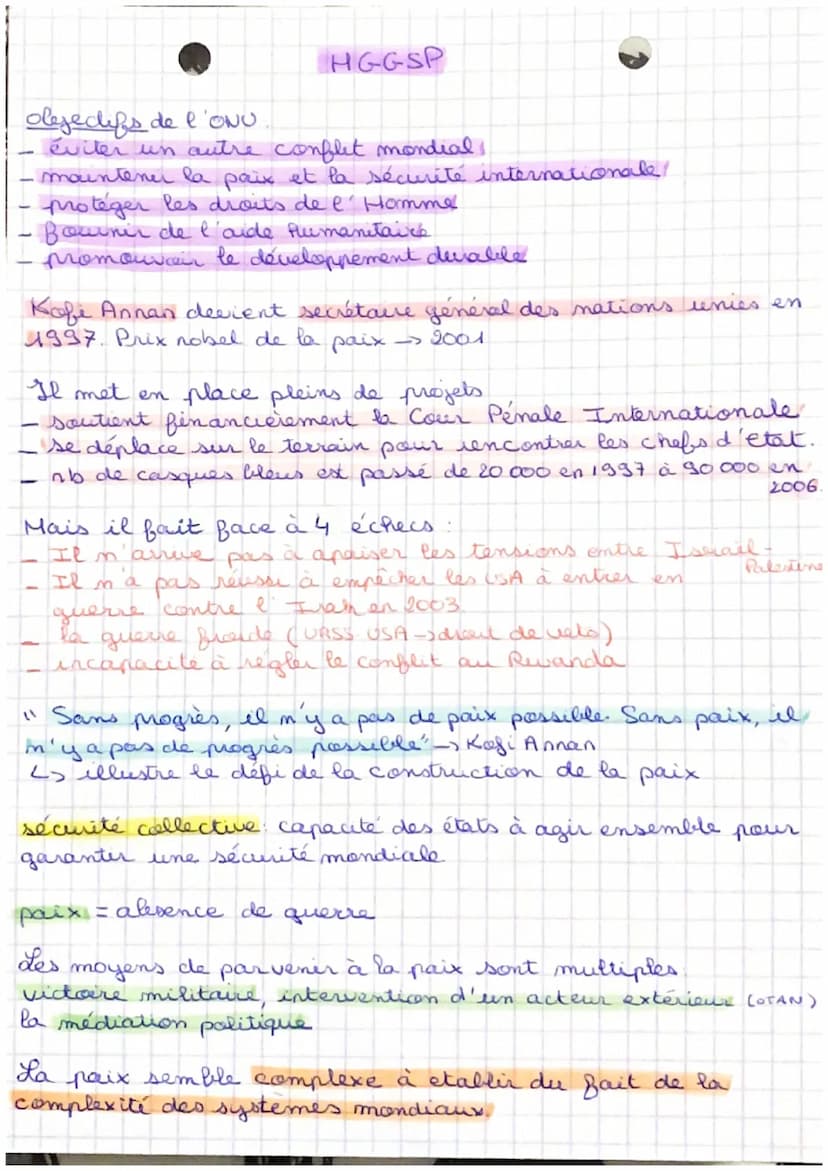 HGGSP
objectifs de l'ONU.
- éviter un autre conflit mondial
- maintenir la paix et la sécurité internationale
- protéger les droits de l'Homme
- Fournir de l'aide humanitaire
- promouvoir le développement durable
Kofi Annan devient secrétaire général des nations unies en
1997. Prix nobel de la paix -> 2001
Il met en place pleins de projets
- soutient financièrement la Cour Pénale Internationale
- se déplace sur le terrain pour rencontrer les chefs d'état.
- nb de casques bleus est passé de 20 000 en 1997 à 90 000 en
2006.
Mais il fait face à 4 échecs :
- Il n'arrive pas à apaiser les tensions entre Israël-
Palestine
- Il n'a pas réussi à empêcher les USA à entrer en
guerre contre l'Irak en 2003
- la guerre froide (URSS USA -> droit de veto)
- incapacité à régler le conflit au Rwanda
" Sans progrès, il n'y a pas de paix possible. Sans paix, il
n'y a pas de progrès possible" -> Kofi Annan
↳ illustre le défi de la construction de la paix
sécurité collective : capacité des états à agir ensemble pour
garantir une sécurité mondiale
paix = absence de guerre
Les moyens de parvenir à la paix sont multiples
victoire militaire, intervention d'un acteur extérieur (OTAN)
la médiation politique
La paix semble complexe à etablir du fait de la
complexité des systèmes mondiaux.